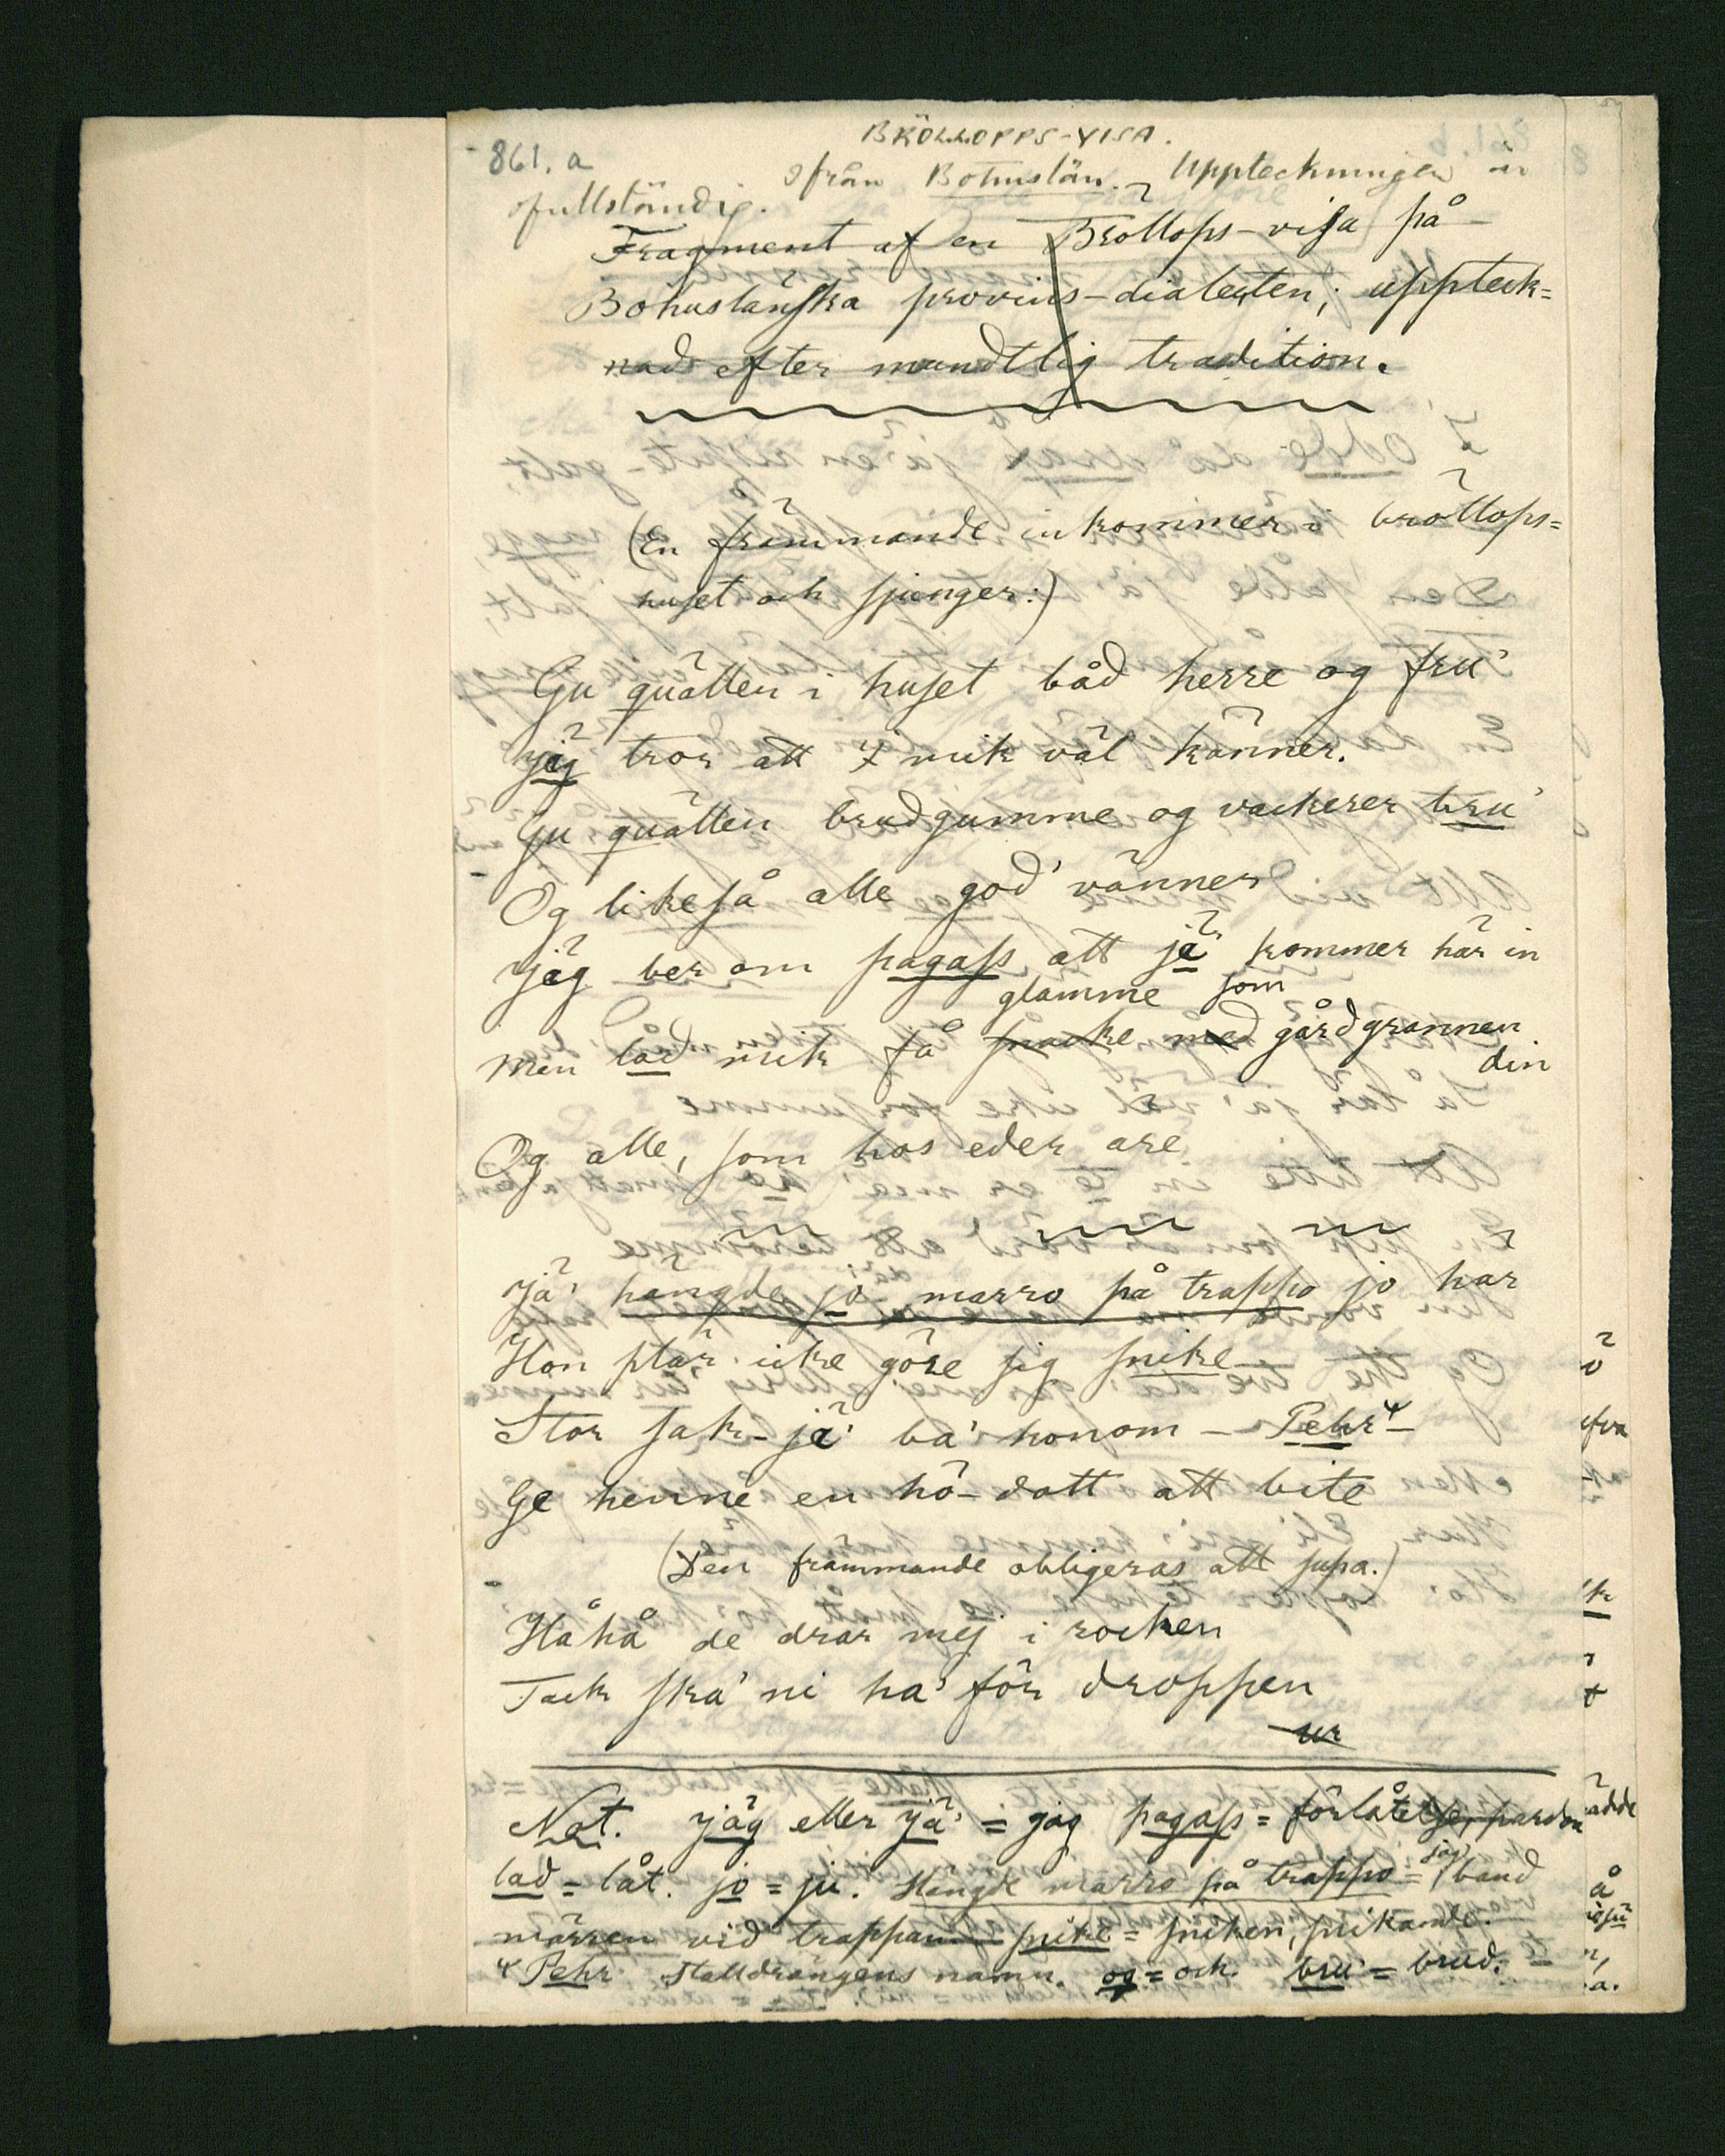 861. a
BRÖLLOPPS-VISA.
ifrån Bohuslän. Uppteckningen är
ofullständig.
Fragment af en Bröllops-visa på
Bohuslänska provins-dialecten; uppteck=
nad efter mundtlig tradition.
(En främmande inkommer i bröllops=
huset och sjunger:)
Gu quällen i huset båd herre og fru'
jäg tror att I mik väl känner.
Gu quällen brudgumme og vackerer bru'
Og likeså alle god' vänner
jäg ber om pagass att jä' kommer här in
glamme som
men lad mik få snacke med gårdgrannen
din
Og alle, som hos eder are
Jä' hängde jo marro på trappo jo här
Hon plär icke göre sig snike
Stor sak - jä' ba' honom - Pehr -
Ge henne en hö-dott att bite
(Den främmande obligeras att supa.)
Håhå de drar mej i rocken
Tack ska' ni ha' för droppen
ur
Not. jäg eller jä' = jag pagass = förlåtelse, pardon
lad = låt. jo = ju. Hängde marro på trappo = jag band
märren vid trappan snike = sniken, snikande.
Pehr Stalldrängens namn. og = och bru' = brud.